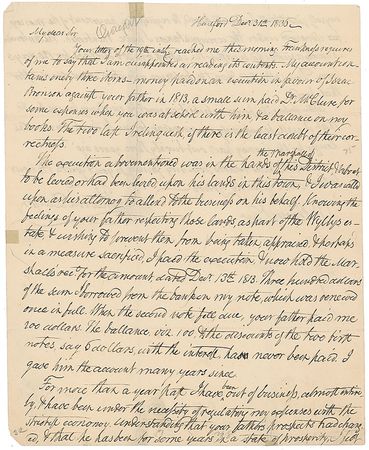 Hartford Decr 31st 1835
My dear Sir
Your letter of the 19th inst reached me this morning. Frankness requires
of me to say that I am disappointed in reading its contents. My account con-
tains only three items – money paid on an execution in favor of Isaac
Bronson against your father in 1813, a small sum paid Dr. McClure for
some expences when you was at school with him & a ballance on my
books. The two last I relinquish, if there is the least doubt of their cor-
rectness.
The execution abovementioned was in the hands of the Marshall of this District & about
to be levied or had been levied upon his lands in this town, & I was called
upon as his attorney to attend to the business on his behalf. Knowing the
feelings of your father respecting those lands, as part of the Wyllys es-
tate, & wishing to prevent them from being taken, appraised, & perhaps
in a measure sacrificed, I paid the execution & now hold the Mar-
shalls rec't for the amount dated Decr 13th 1813. Three hundred dollars
of the sum I borrowed from the bank on my note, which was renewed
once in full. When the second note fell due, your father paid me
200 dollars. The ballance our 100 & the discounts of the two first
notes say 6 dollars, with the interest, has never been paid. I
gave him the account many years since.
For more than a year past I have been out of business, almost entire-
ly, & have been under the necessity of regulating my expences with the
strictest economy. Understanding that your fathers prospects had chang-
ed, & that he has been for some years in a state of prosperity, I